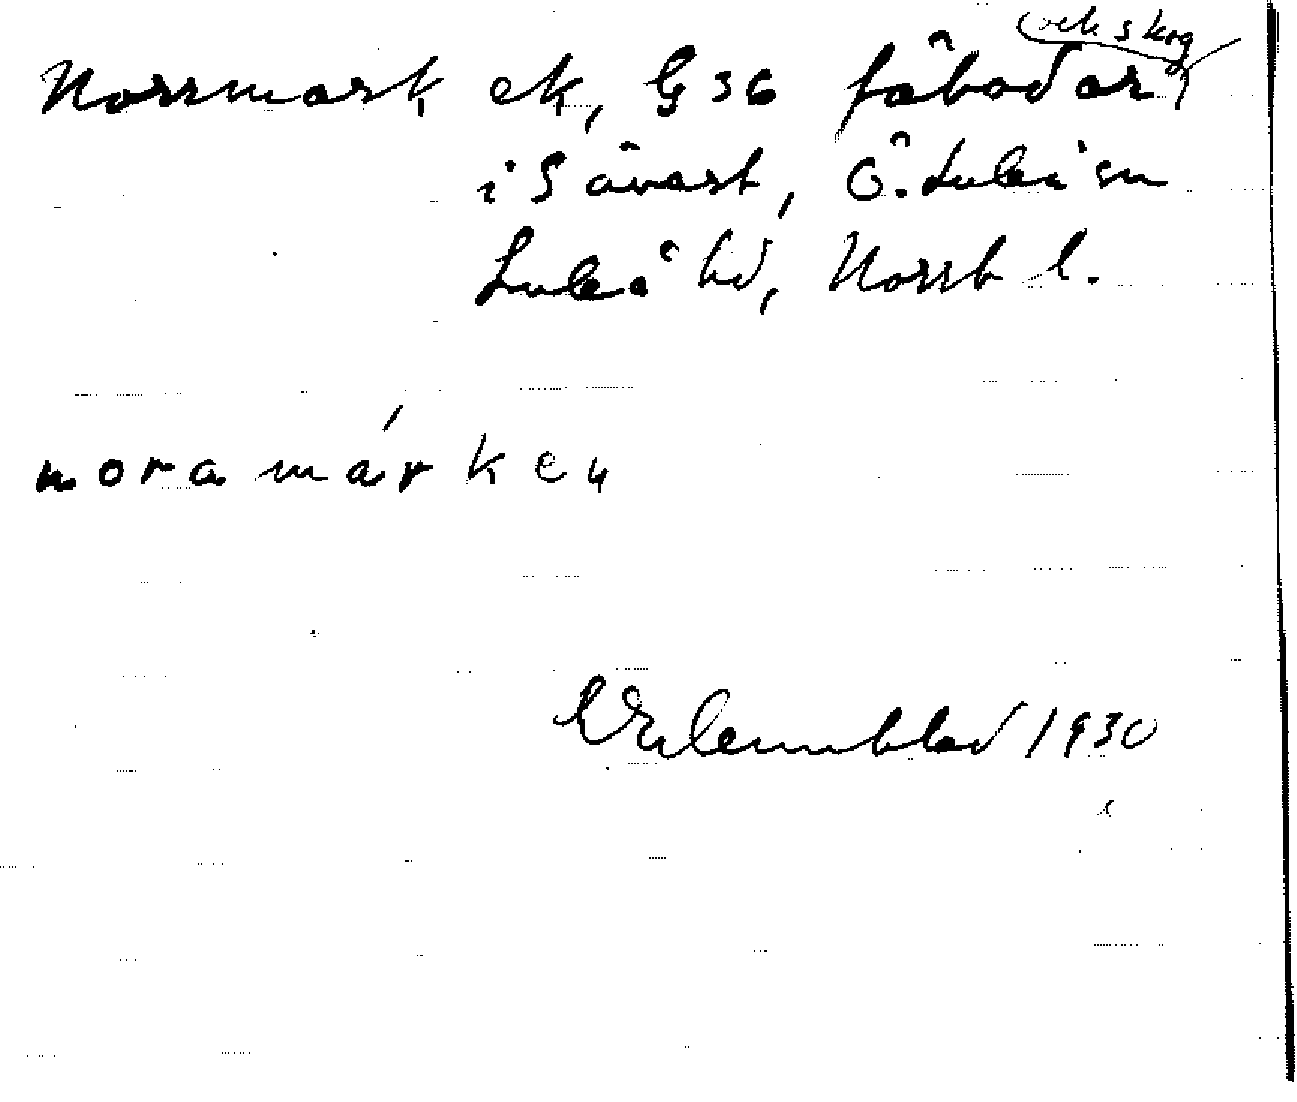 och skog
Norrmark ek, G 36 fäbodar
i Sävast, Ö. Luleå sn
Luleå hd, Norrb l.
noramárken
Wennblad 1930